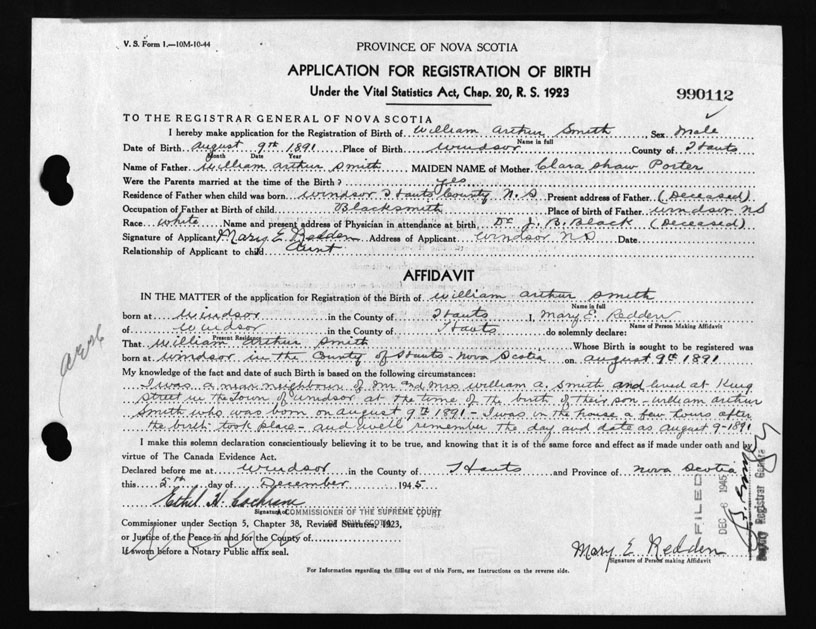 V. S. Form 1.—10M-10-44
PROVINCE OF NOVA SCOTIA
APPLICATION FOR REGISTRATION OF BIRTH
Under the Vital Statistics Act, Chap. 20, R. S. 1923
990112
TO THE REGISTRAR GENERAL OF NOVA SCOTIA
I hereby make application for the Registration of Birth of William Arthur Smith Sex Male
Name in full
Date of Birth August 9th 1891 Place of Birth Windsor County of Hants
Month Date Year
Name of Father William Arthur Smith MAIDEN NAME of Mother Clara Shaw Porter
Were the Parents married at the time of the Birth? yes
Residence of Father when child was born Windsor Hants County N. S Present address of Father (Deceased)
Occupation of Father at Birth of child Blacksmith Place of birth of Father Windsor NS
Race White Name and present address of Physician in attendance at birth Dr J. B. Black (Deceased)
Signature of Applicant Mary E. Redden Address of Applicant Windsor NS Date
Relationship of Applicant to child Aunt
AFFIDAVIT
IN THE MATTER of the application for Registration of the Birth of William Arthur Smith
Name in full
born at Windsor in the County of Hants I, Mary E. Redden
Name of Person Making Affidavit
of Windsor in the County of Hants do solemnly declare:
Present Residence
That William Arthur Smith Whose Birth is sought to be registered was
born at Windsor in the County of Hants - Nova Scotia on August 9th 1891
My knowledge of the fact and date of such Birth is based on the following circumstances:
I was a near neighbour of Mr and Mrs William A. Smith and lived at King
Street in the Town of Windsor at the time of the birth of their son - William Arthur
Smith who was born on August 9th 1891 - I was in the house a few hours after
the birth took place - and well remember the day and date as August 9 - 1891
I make this solemn declaration conscientiously believing it to be true, and knowing that it is of the same force and effect as if made under oath and by
virtue of The Canada Evidence Act.
Declared before me at Windsor in the County of Hants and Province of Nova Scotia
this 5th day of December 1945
Ethel H. Cochran
Signature of
A COMMISSIONER OF THE SUPREME COURT
OF NOVA SCOTIA
Commissioner under Section 5, Chapter 38, Revised Statutes, 1923,
or Justice of the Peace in and for the County of
If sworn before a Notary Public affix seal.
Mary E. Redden
Signature of Person making Affidavit
For Information regarding the filling out of this Form, see Instructions on the reverse side.
FILED
DEC 8 1945
Deputy Registrar General